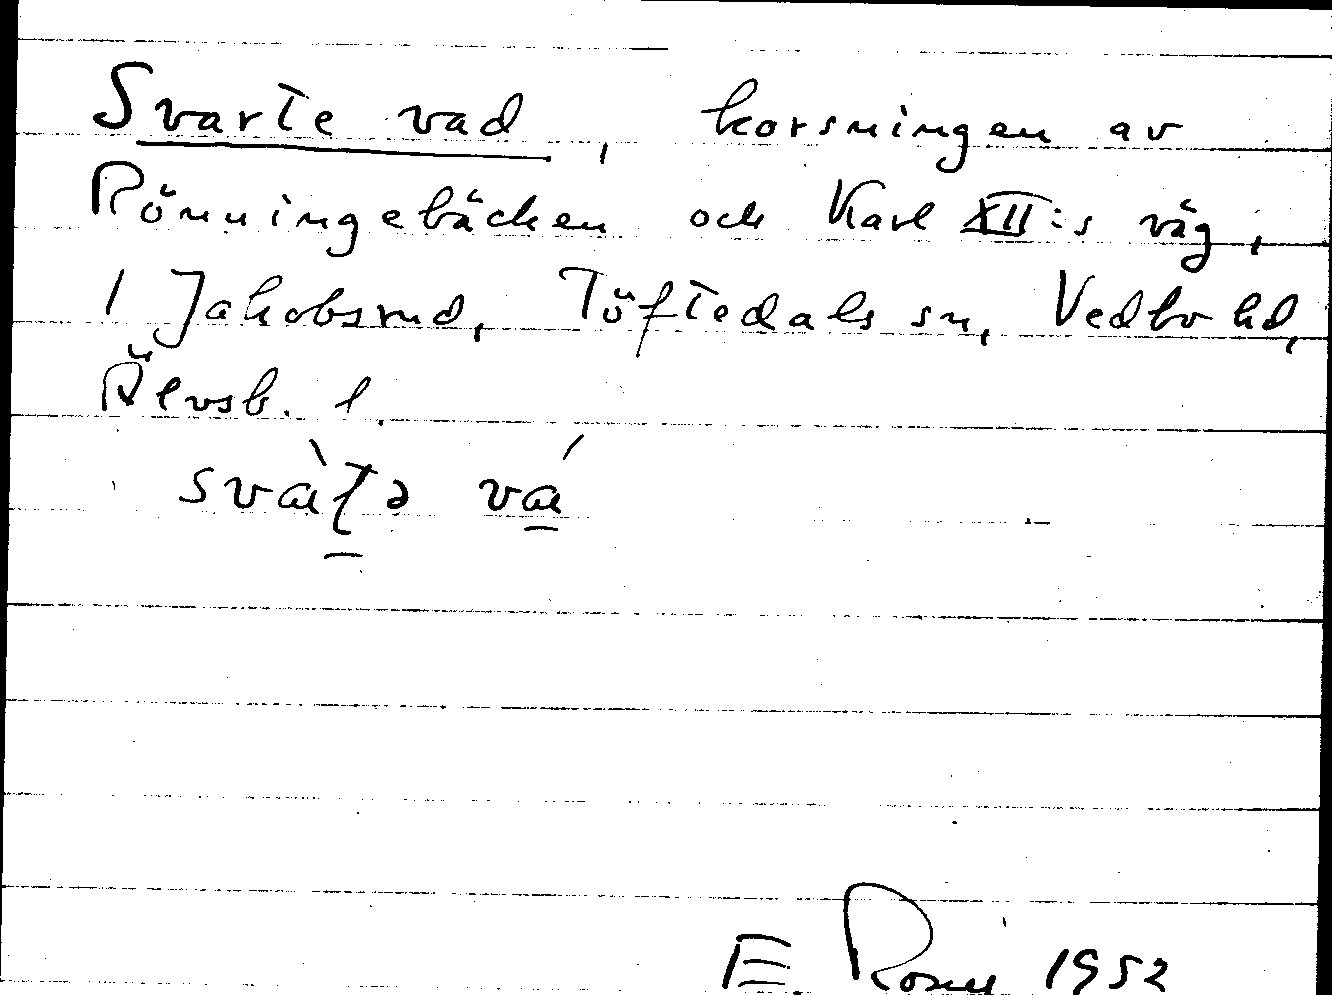 Svarte vad, korsningen av
Rönningebäcken och Karl XII:s väg,
1 Jakobsrud, Töftedals sn, Vedbo hd,
Älvsb. l.
svàʈə vá
E. Rosell 1952